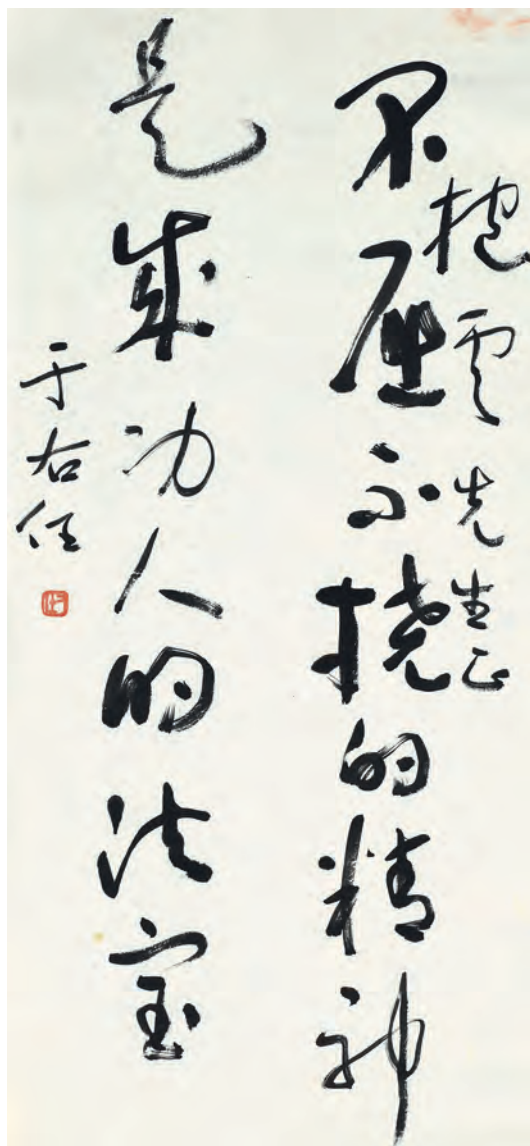 抱雲先生正
不屈不撓的精神
是成功人的法宝
于右任